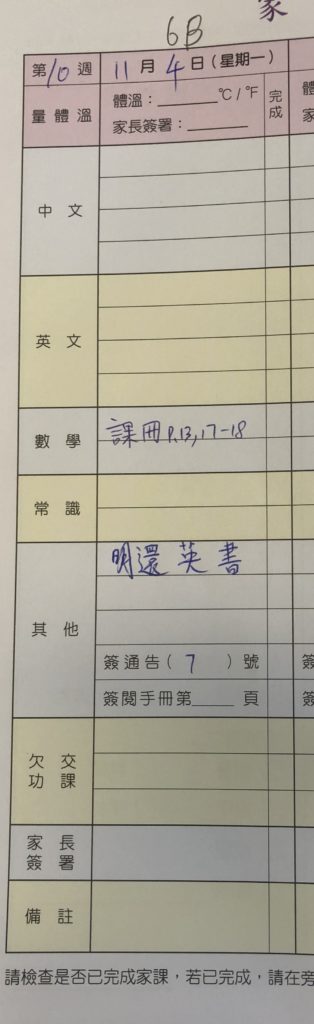 家
6B
第10週 11月4日(星期一)
量體溫 體溫：______℃/℉ 完成
家長簽署：______
中文
英文
數學 課冊P.13,17-18
常識
其他 明還英書
簽通告(7)號
簽閱手冊第____頁
欠交功課
家長簽署
備註
請檢查是否已完成家課，若已完成，請在旁